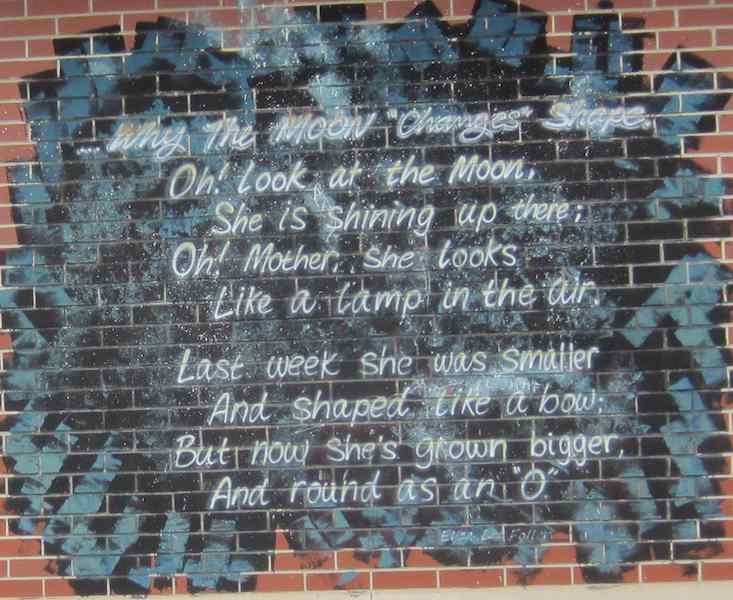 ... Why The MOON "Changes" Shape.
Oh! Look at the Moon,
She is shining up there;
Oh! Mother, she looks
Like a lamp in the air.
Last week she was smaller
And shaped like a bow;
But now she's grown bigger,
And round as an "O"
Follen